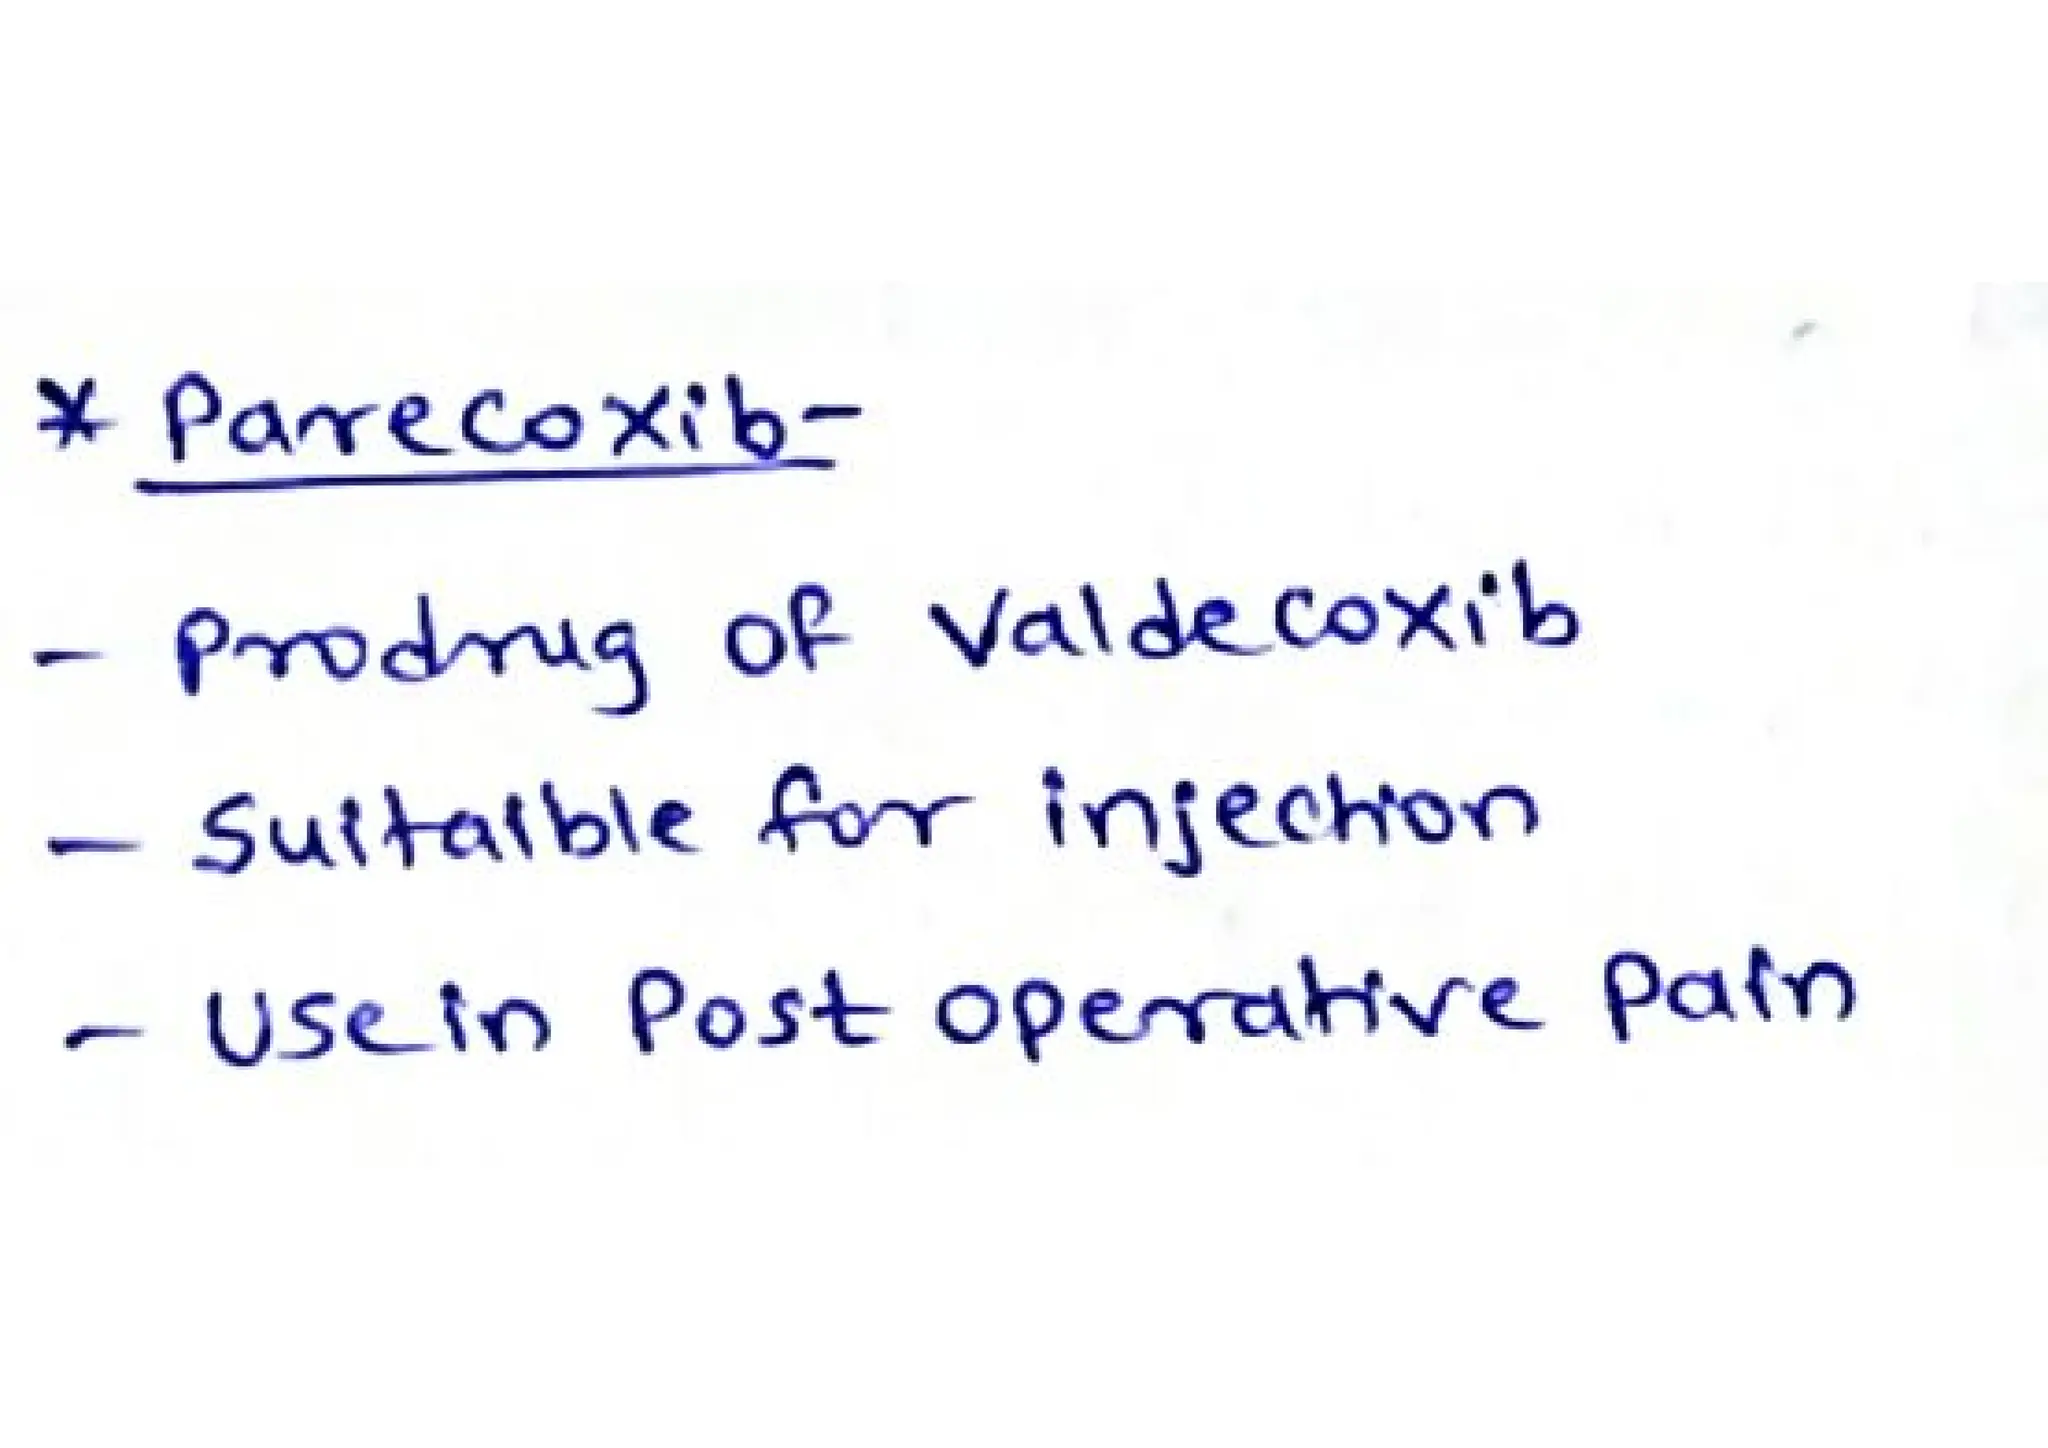 * Parecoxib-
- Prodrug of Valdecoxib
- Suitaible for injection
- Use in Post operative Pain